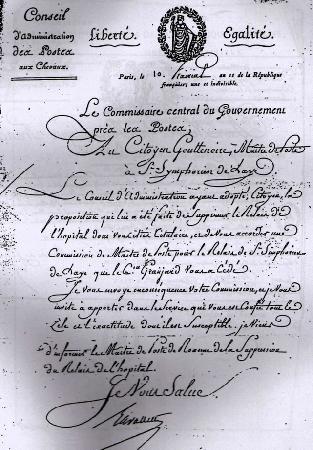 Conseil
d'administration
des Postes
aux Chevaux.
Liberté,
Egalité.
Paris, le 10. an 11 de la République
française, une et indivisible.
Le Commissaire central du Gouvernement
près les Postes,
Au Citoyen Gouttenoire, Maitre de Poste
à St. Symphorien de Laye
Le Conseil d'Administration ayant adopté, Citoyen, la
proposition qui lui a été faite de supprimer le Relais de
l'hopital dont vous êtes titulaire, et de vous accorder une
Commission de Maitre de Poste pour le Relais de St. Simphorien
de Laye que le Cen. Granjard vous a cédé.
Je vous envoye en conséquence votre Commission, et je vous
invite à apporter dans le service qui vous est confié tout le
zèle et l'exactitude dont il est susceptible. je viens
d'informer le Maitre de Poste de Roanne de la suppression
du Relais de l'hopital.
Je Vous Salue